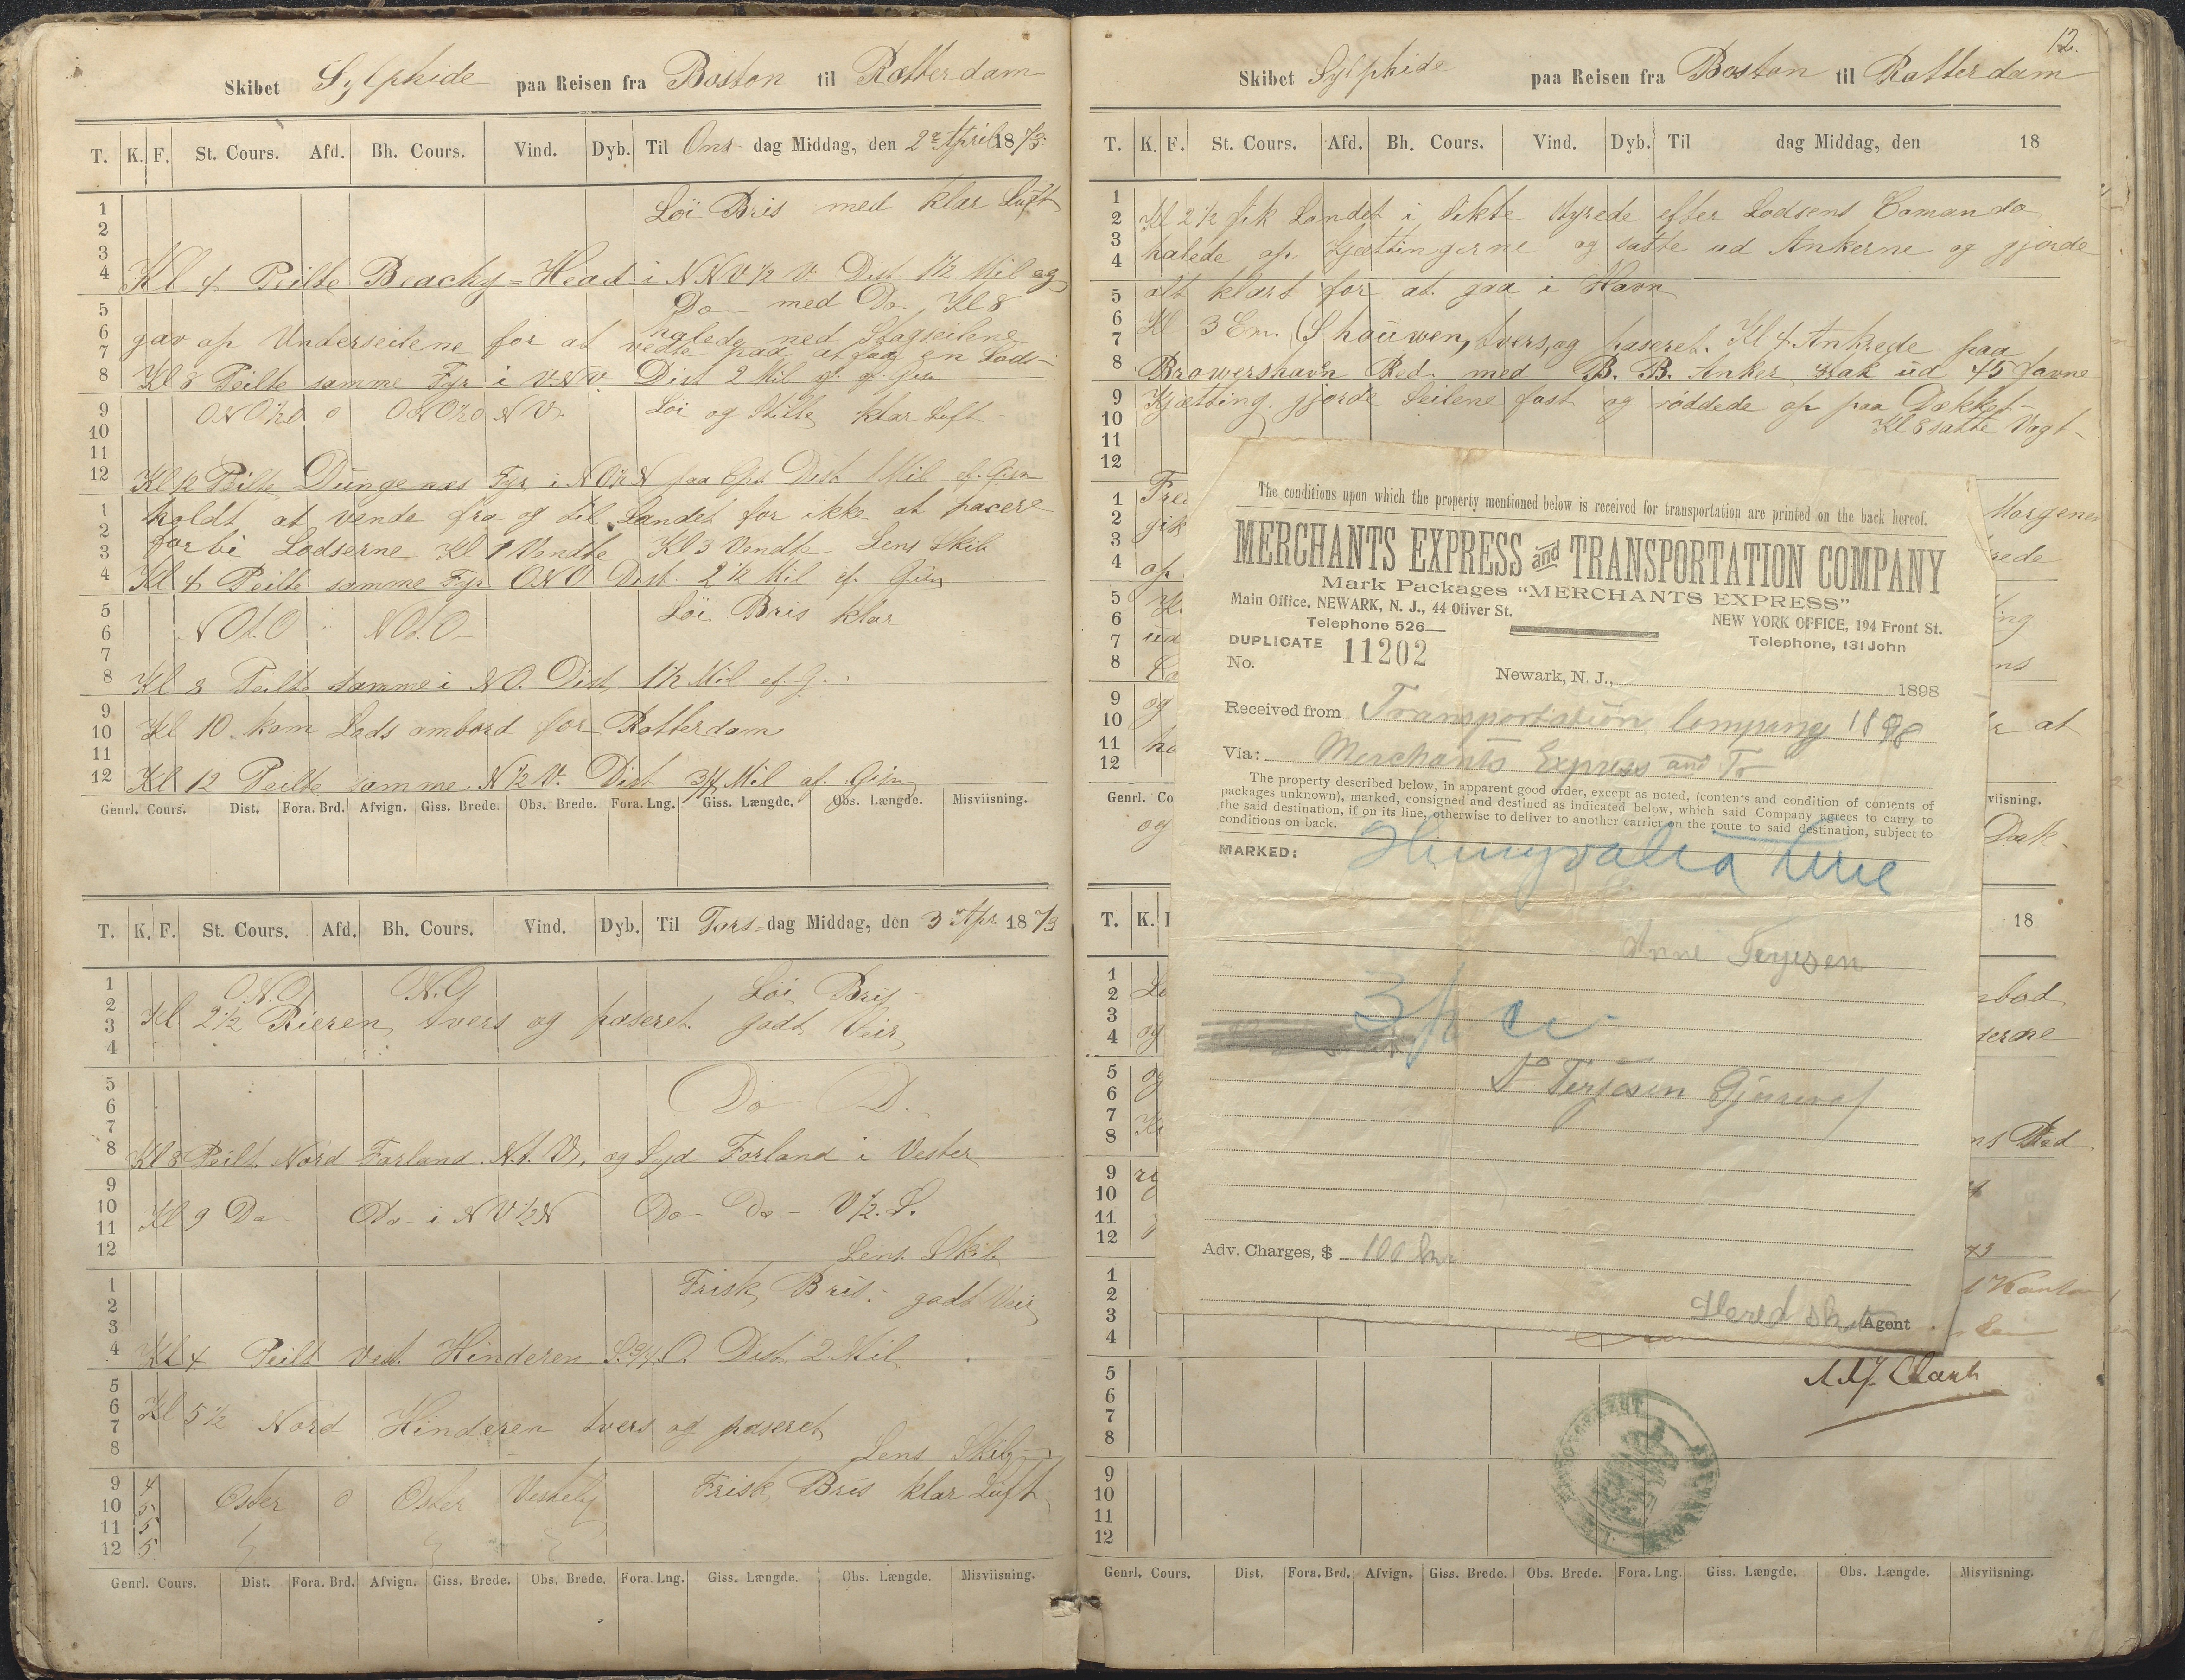 Skibet Sylphide paa Reisen fra Boston til Rotterdam
T. K. F. St. Cours. Afd. Bh. Cours. Vind. Dyb. Til Ons dag Middag, den 2 April 1873.
1
2
3
4
Löi Bris med klar Luft
Kl 4 Peilte Beachy=Head i NNV½V Dist 1½ Mil og
5
6
7
8
Do med Do Kl 8
gav op Underseilene for at halede ned Stagseilene
vente paa at faa en Lods
Kl 8 Peilte samme Fyr i V.N.V. Dist 2 Mil
9
10
11
12
ONO½O 0 ONO½O NV. Löi og Stille klar Luft
Kl 12 Peilte Dungenæs Fyr i NO½N paa Dist 1 Mil
1
2
3
4
holdt at vende fra og til Landet for ikke at pacere
forbi Lodserne Kl 1 Vendte Kl 3 Vendte Lens Skib
Kl 4 Peilte samme Fyr ONO Dist. 2½ Mil
5
6
7
8
NOt.O NOt.O Löi Bris klar
Kl 8 Peilte samme i NO. Dist 1½ Mil ef. G.
9
10
11
12
Kl 10 kom Lods ombord for Rotterdam
Kl 12 Peilte samme N½V. Dist 3/4 Mil af. Gisn
Genrl. Cours. Dist. Fora. Brd. Afvign. Giss. Brede. Obs. Brede. Fora. Lng. Giss. Længde. Obs. Længde. Misviisning.
T. K. F. St. Cours. Afd. Bh. Cours. Vind. Dyb. Til Tors=dag Middag, den 3 Apr 1873
1
2
3
4
O.N.O. Löi Bris
Kl 2½ Rieren tvers og paseret. godt Veir
5
6
7
8
Do D.
Kl 8 Peilt Nord Forland N.t.V, og Syd Forland i Vester
9
10
11
12
Kl 9 Do Do i NV½N Do Do V½.S.
Lens Skib
1
2
3
4
Frisk Bris. godt Veir
Kl 4 Peilt Vest Hinderen S.3/4.O. Dist 2 Mil
5
6
7
8
Kl 5½ Nord Hinderen tvers og paseret
Lens Skib
9 4
10 5
11 5
12 5
Oster 0 Oster Vestelig Frisk Bris klar Luft
Genrl. Cours. Dist. Fora. Brd. Afvign. Giss. Brede. Obs. Brede. Fora. Lng. Giss. Længde. Obs. Længde. Misviisning.
12.
Skibet Sylphide paa Reisen fra Boston til Rotterdam
T. K. F. St. Cours. Afd. Bh. Cours. Vind. Dyb. Til dag Middag, den 18
1
2
3
4
Kl 2½ fik Landet i Sikte styrede efter Lodsens Comando
halede op Kjættingerne og satte ud Ankerne og gjorde
5
6
7
8
alt klart for at gaa i Havn
Kl 3 Em. Shouwen, tvers, og paseret. Kl 4 Ankrede paa
Browershavn Red med B.B. Anker stak ud 45 favne
9
10
11
12
Kjætting. gjorde Seilene fast og röddede op paa Dækket
Kl 8 satte Vagt
1
2
3
4
Morgenen
gik
op
5
6
7
8
ud
9
10
11
12
og
at
Genrl. Co
viisning.
og
Dæk.
T. K. 18
1
2
3
4
og
5
6
7
8
og
9
10
11
12
1
2
3
4
5
6
7
8
9
10
11
12
The conditions upon which the property mentioned below is received for transportation are printed on the back hereof.
MERCHANTS EXPRESS and TRANSPORTATION COMPANY
Mark Packages "MERCHANTS EXPRESS"
Main Office. NEWARK, N. J., 44 Oliver St.
Telephone 526
NEW YORK OFFICE, 194 Front St.
Telephone, 131 John
DUPLICATE
No. 11202
Newark, N. J., 1898
Received from Transportation Company 1898
Via: Merchants Express and Tr
The property described below, in apparent good order, except as noted, (contents and condition of contents of
packages unknown), marked, consigned and destined as indicated below, which said Company agrees to carry to
the said destination, if on its line, otherwise to deliver to another carrier on the route to said destination, subject to
conditions on back.
MARKED:
Anne Terjesen
Terjesen
Adv. Charges, $ 100
Agent
Genrl. Cours. Dist. Fora. Brd. Afvign. Giss. Brede. Obs. Brede. Fora. Lng. Giss. Længde. Obs. Længde. Misviisning.